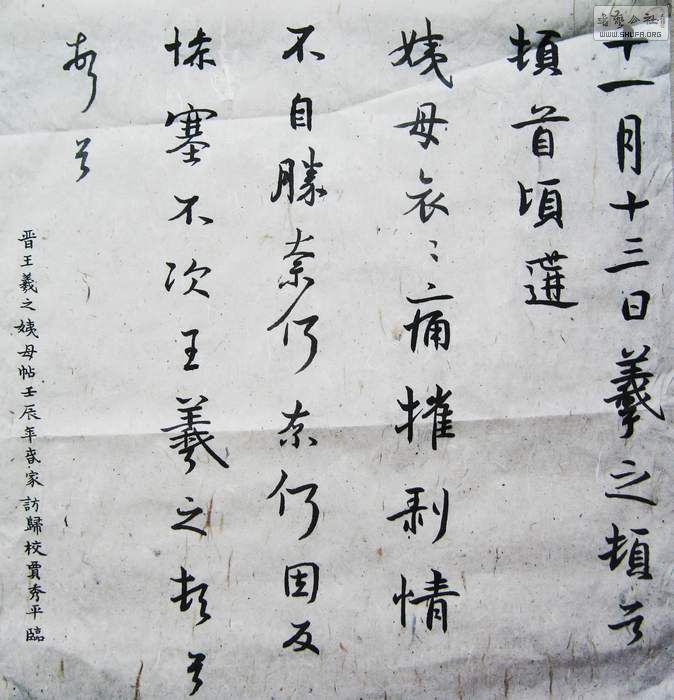 十一月十三日羲之頓首
頓首頃遘
姨母哀〻痛摧剥情
不自勝奈何奈何因反
慘塞不次王羲之頓首
頓首
晋王羲之姨母帖壬辰年家訪歸校賈秀平臨
书艺公社
WWW.SHUFA.ORG